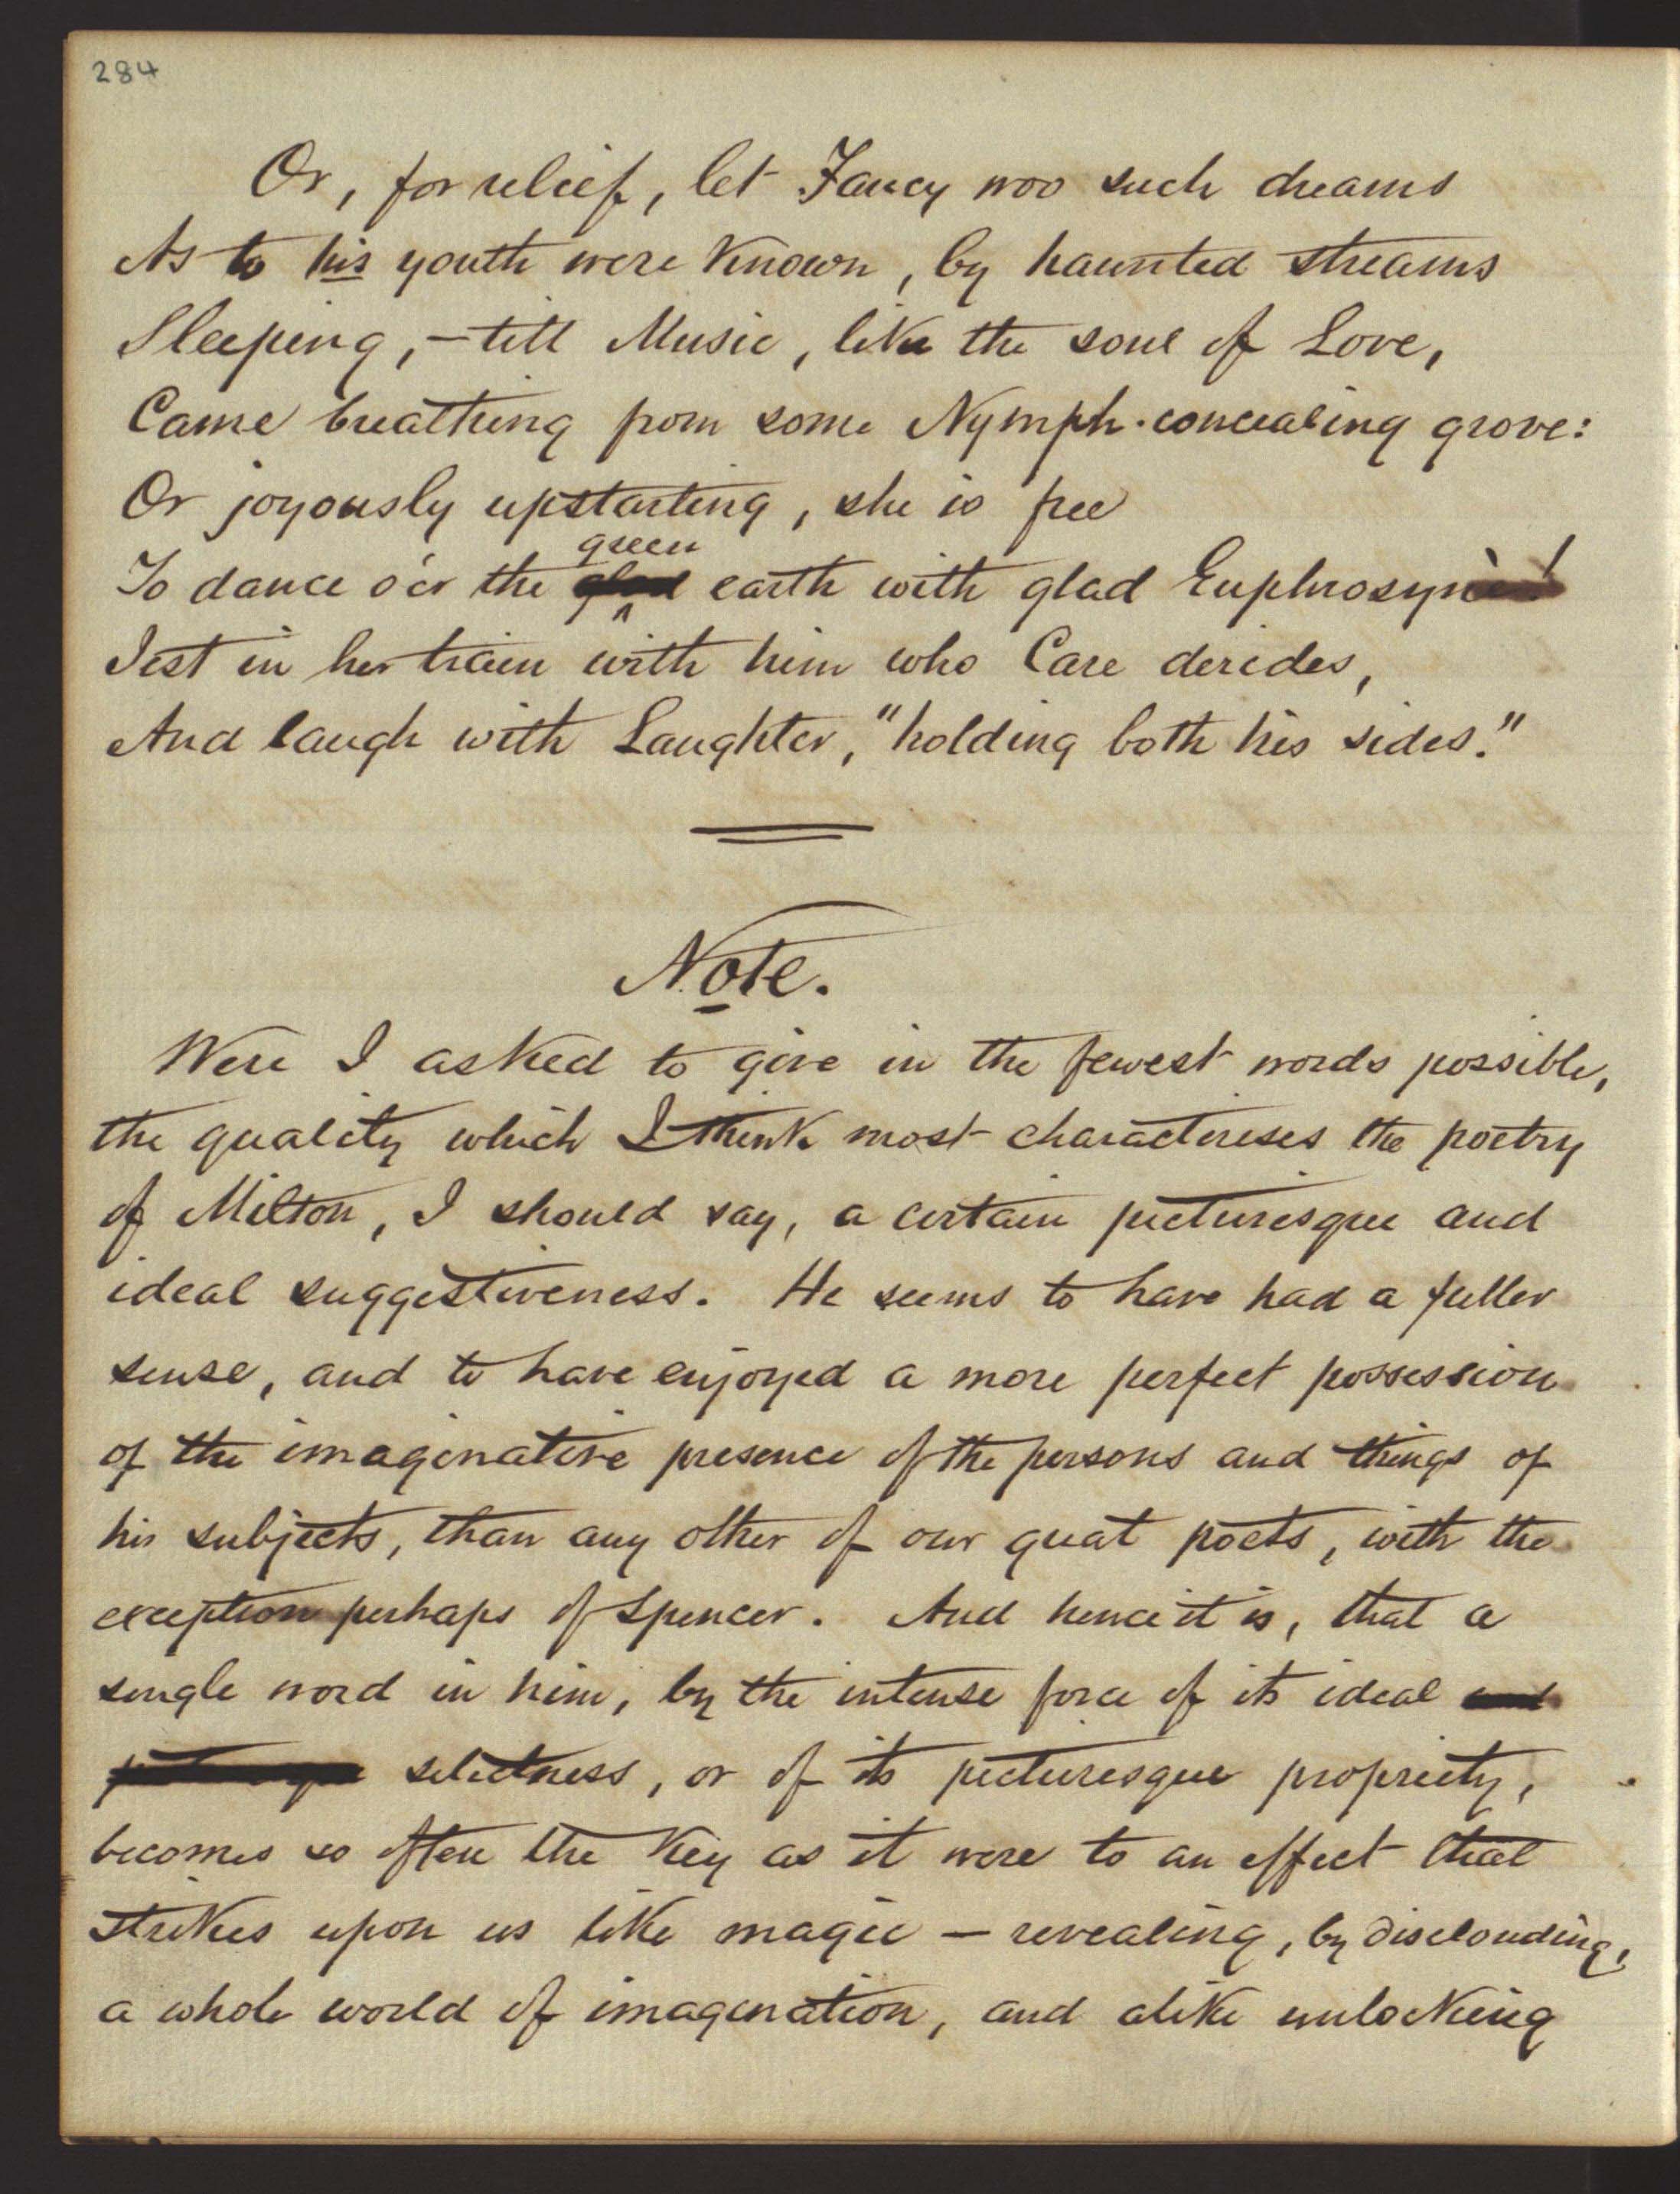 284
Or, for relief, let Fancy woo such dreams
As to his youth were known, by haunted streams
Sleeping, – till Music, like the soul of Love,
Came breathing from some Nymph-concealing grove:
Or joyously upstarting, she is free
green
To dance o'er the glad earth with glad Euphrosynè!
Jest in her train with him who Care derides,
And laugh with Laughter, "holding both his sides."
Note.
Were I asked to give in the fewest words possible,
the quality which I think most characterises the poetry
of Milton, I should say, a certain picturesque and
ideal suggestiveness. He seems to have had a fuller
sense, and to have enjoyed a more perfect possession
of the imaginative presence of the persons and things of
his subjects, than any other of our great poets, with the
exception perhaps of Spencer. And hence it is, that a
single word in him, by the intense force of its ideal and
picturesque selectness, or of its picturesque propriety,
becomes so often the key as it were to an effect that
strikes upon us like magic – revealing, by disclouding,
a whole world of imagination, and alike unlocking